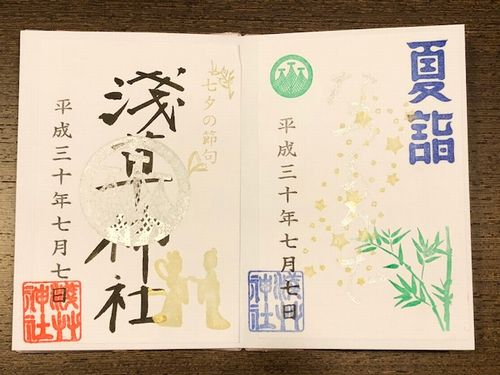 夏詣
平成三十年七月七日
浅草神社
七夕の節句
淺草神社
平成三十年七月七日
浅草神社